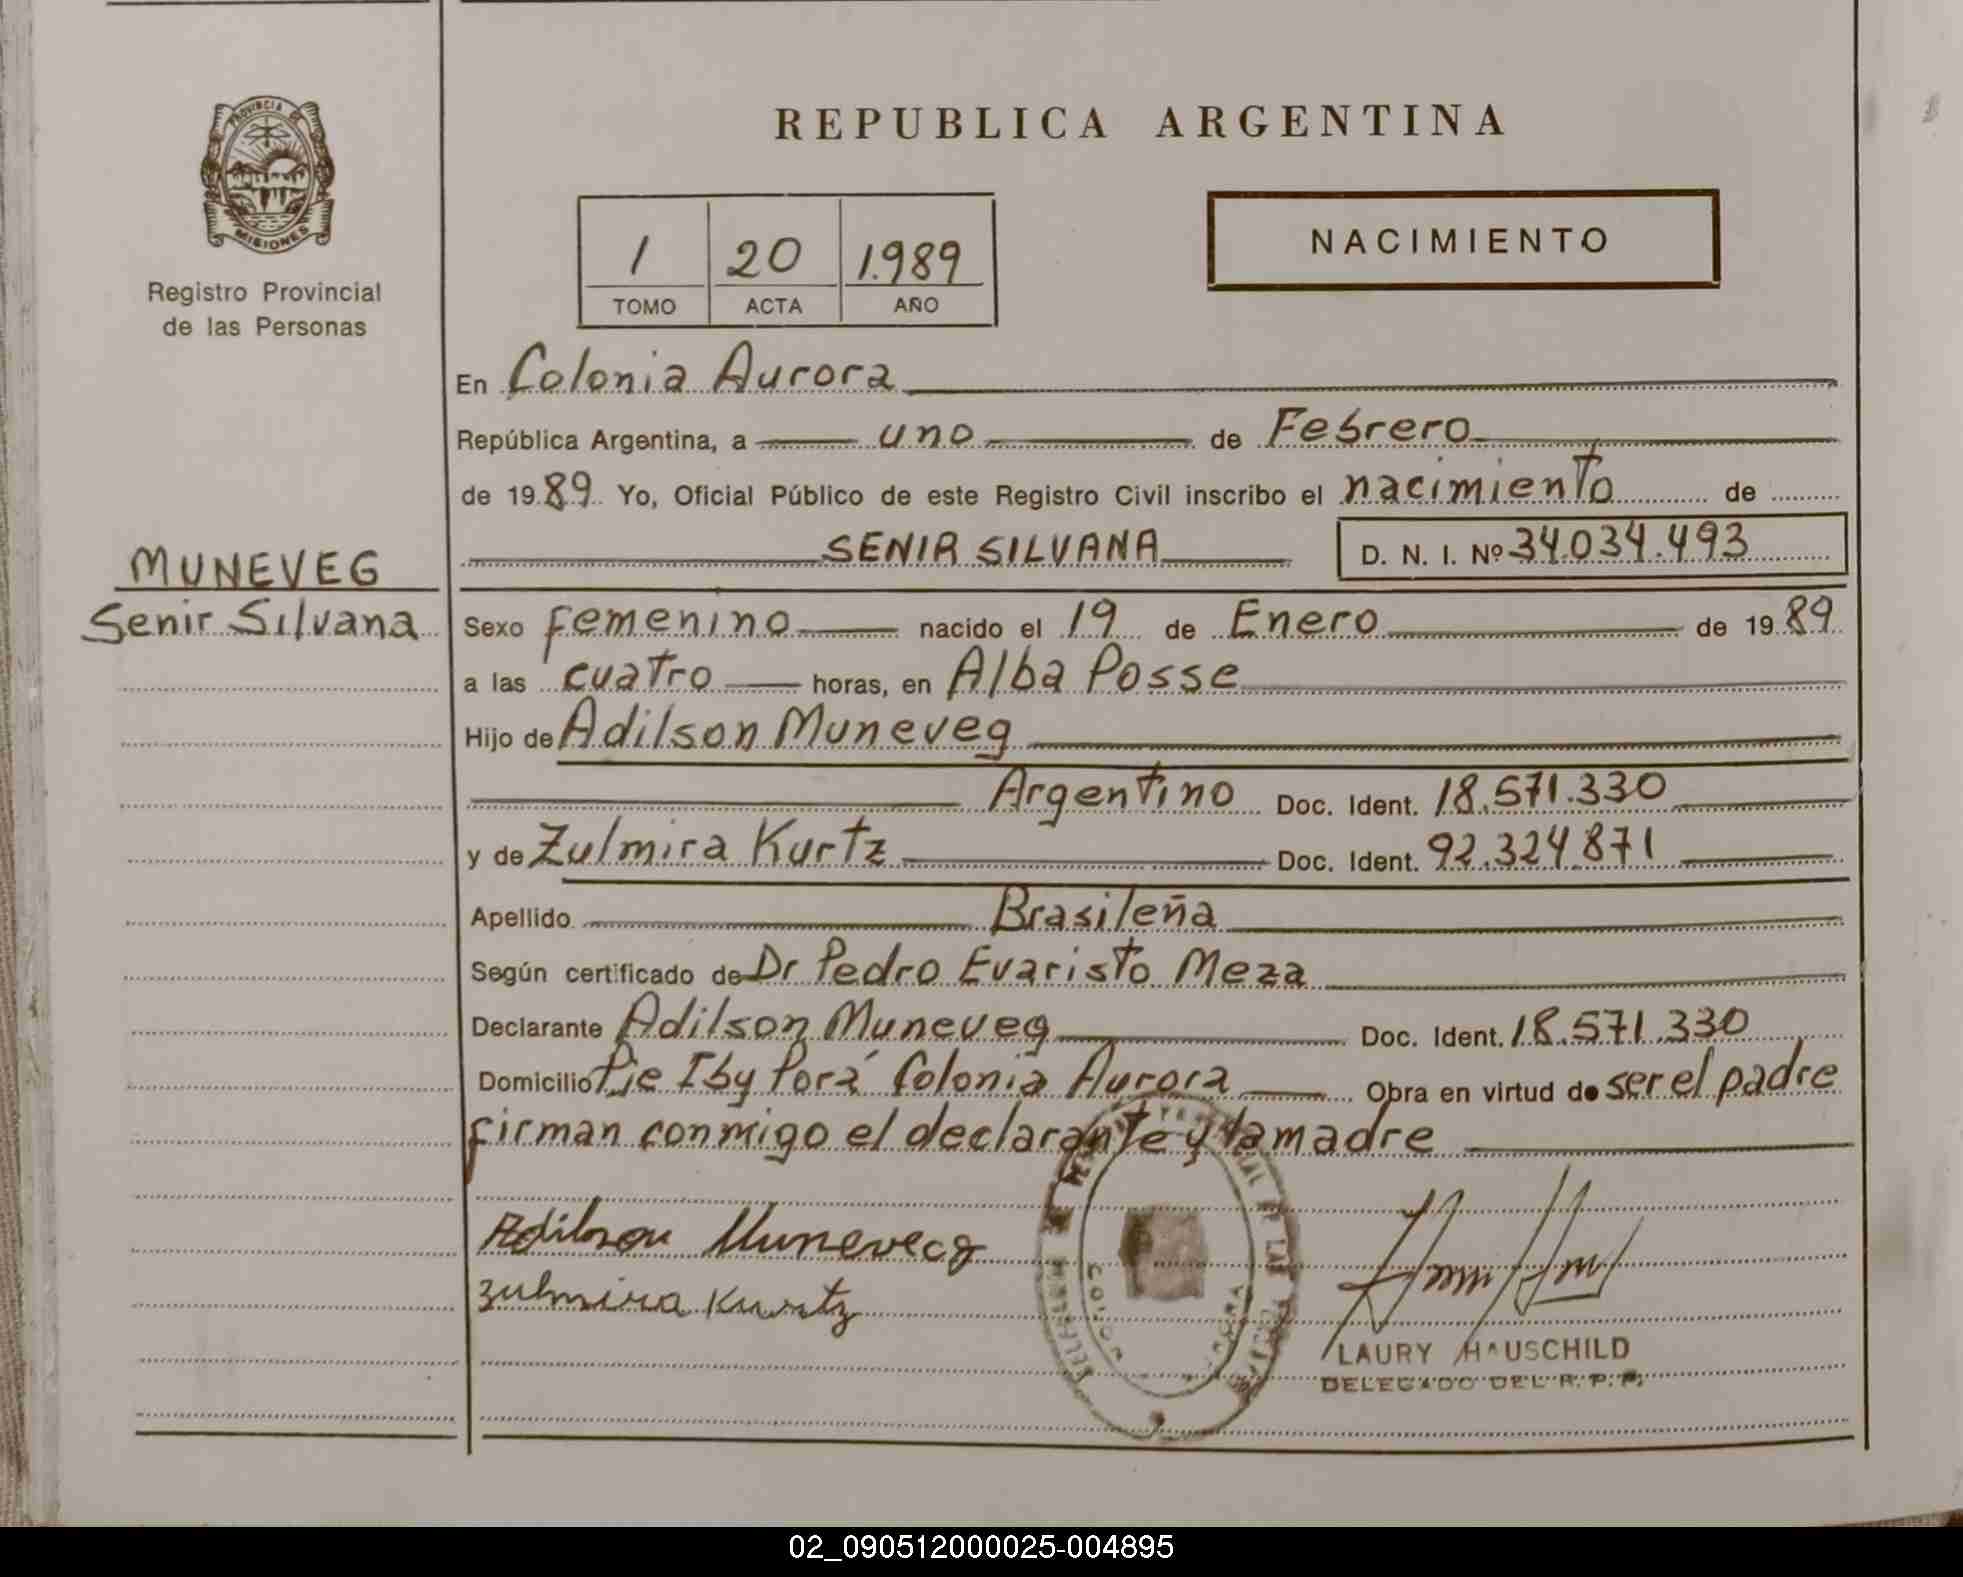 PROVINCIA DE
MISIONES
Registro Provincial
de las Personas
REPUBLICA ARGENTINA
NACIMIENTO
1 20 1.989
TOMO ACTA AÑO
En Colonia Aurora
República Argentina, a uno de Febrero
de 19 89 Yo, Oficial Público de este Registro Civil inscribo el nacimiento de
SENIR SILVANA D. N. I. Nº 34.034.493
MUNEVEG
Senir Silvana
Sexo femenino nacido el 19 de Enero de 19 89
a las cuatro horas, en Alba Posse
Hijo de Adilson Muneveg
Argentino Doc. Ident. 18.571.330
y de Zulmira Kurtz Doc. Ident. 92.324.871
Apellido Brasileña
Según certificado de Dr Pedro Evaristo Meza
Declarante Adilson Muneveg Doc. Ident. 18.571.330
Domicilio Pje Iby Porá Colonia Aurora Obra en virtud de ser el padre
firman conmigo el declarante y la madre
Adilson Munevecg
Zulmira Kurtz
LAURY HAUSCHILD
DELEGADO DEL R. P. P.
02_090512000025-004895